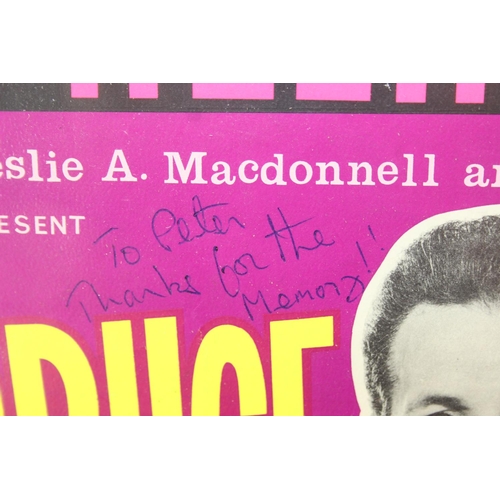 eslie A. Macdonnell an
ESENT
To Peter
Thanks for the
Memory!!
RUCE